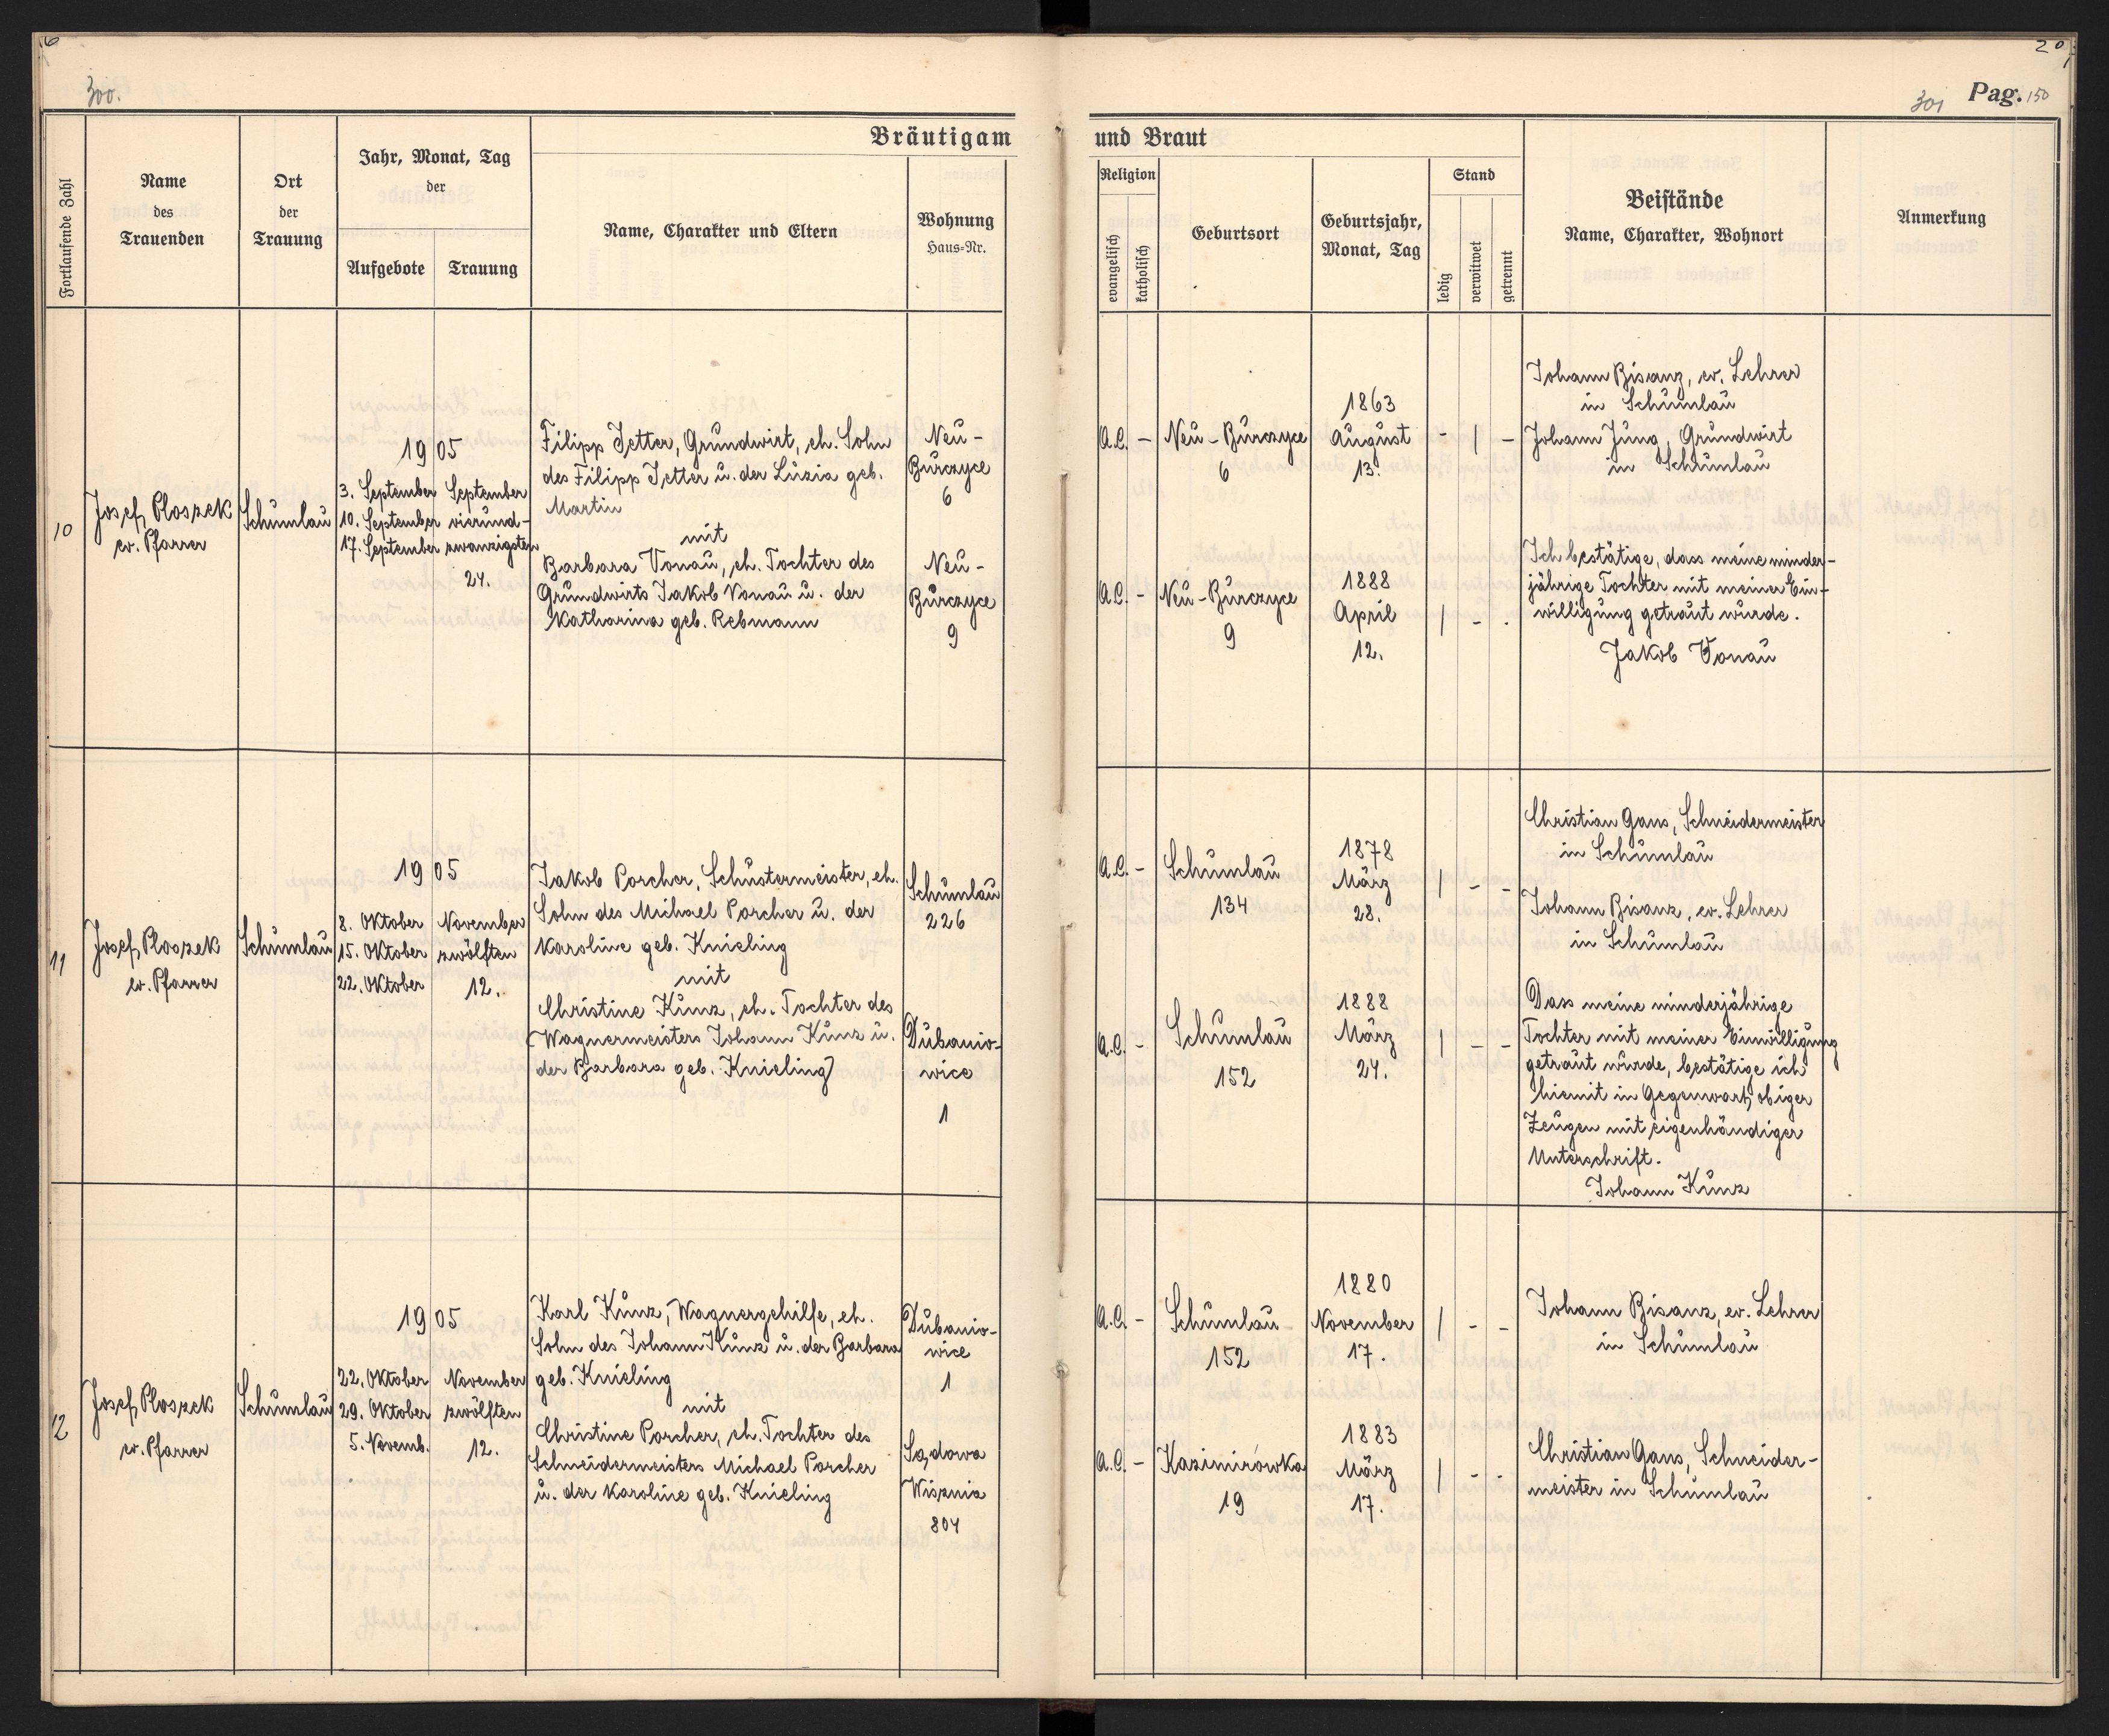 6
20
300.
301 Pag. 150
Bräutigam und Braut
Fortlaufende Zahl
Name
des
Trauenden
Ort
der
Trauung
Jahr, Monat, Tag
der
Aufgebote
Trauung
Name, Charakter und Eltern
Wohnung
Haus-Nr.
Religion
evangelisch
katholisch
Geburtsort
Geburtsjahr,
Monat, Tag
Stand
ledig
verwitwet
getrennt
Beistände
Name, Charakter, Wohnort
Anmerkung
10
Josef Ploszek
ev. Pfarrer
Schumlau
1905
3. September
10. September
17. September
September
vierund-
zwanzigsten
24.
Filipp Jetter, Grundwirt, eh. Sohn
des Filipp Jetter u. der Luzia geb.
Martin
mit
Barbara Vonau, eh. Tochter des
Grundwirts Jakob Vonau u. der
Katharina geb. Rebmann
Neu-
Burczyce
6
Neu-
Burczyce
9
A.C. -
Neu-Burczyce
6
1863
August
13.
- | -
A.C. -
Neu-Burczyce
9
1888
April
12.
| - -
Johann Bisanz, ev. Lehrer
in Schumlau
Johann Jung, Grundwirt
in Schumlau
Ich bestätige, dass meine minder-
jährige Tochter mit meiner Ein-
willigung getraut wurde.
Jakob Vonau
11
Josef Ploszek
ev. Pfarrer
Schumlau
1905
8. Oktober
15. Oktober
22. Oktober
November
zwölften
12.
Jakob Porcher, Schustermeister, eh.
Sohn des Michael Porcher u. der
Karoline geb. Knieling
mit
Christine Kunz, eh. Tochter des
Wagnermeisters Johann Kunz u.
der Barbara geb. Knieling
Schumlau
226
Dubanio-
wice
1
A.C. -
Schumlau
134
1878
März
28.
| - -
A.C. -
Schumlau
152
1888
März
24.
| - -
Christian Gans, Schneidermeister
in Schumlau
Johann Bisanz, ev. Lehrer
in Schumlau
Dass meine minderjährige
Tochter mit meiner Einwilligung
getraut wurde, bestätige ich
hiemit in Gegenwart obiger
Zeugen mit eigenhändiger
Unterschrift.
Johann Kunz
12
Josef Ploszek
ev. Pfarrer
Schumlau
1905
22. Oktober
29. Oktober
5. Novemb.
November
zwölften
12.
Karl Kunz, Wagnergehilfe, eh.
Sohn des Johann Kunz u. der Barbara
geb. Knieling
mit
Christine Porcher, eh. Tochter des
Schneidermeisters Michael Porcher
u. der Karoline geb. Knieling
Dubanio-
wice
1
Sądowa
Wisznia
804
A.C. -
Schumlau
152
1880
November
17.
| - -
A.C. -
Kazimirówka
19
1883
März
17.
| - -
Johann Bisanz, ev. Lehrer
in Schumlau
Christian Gans, Schneider-
meister in Schumlau